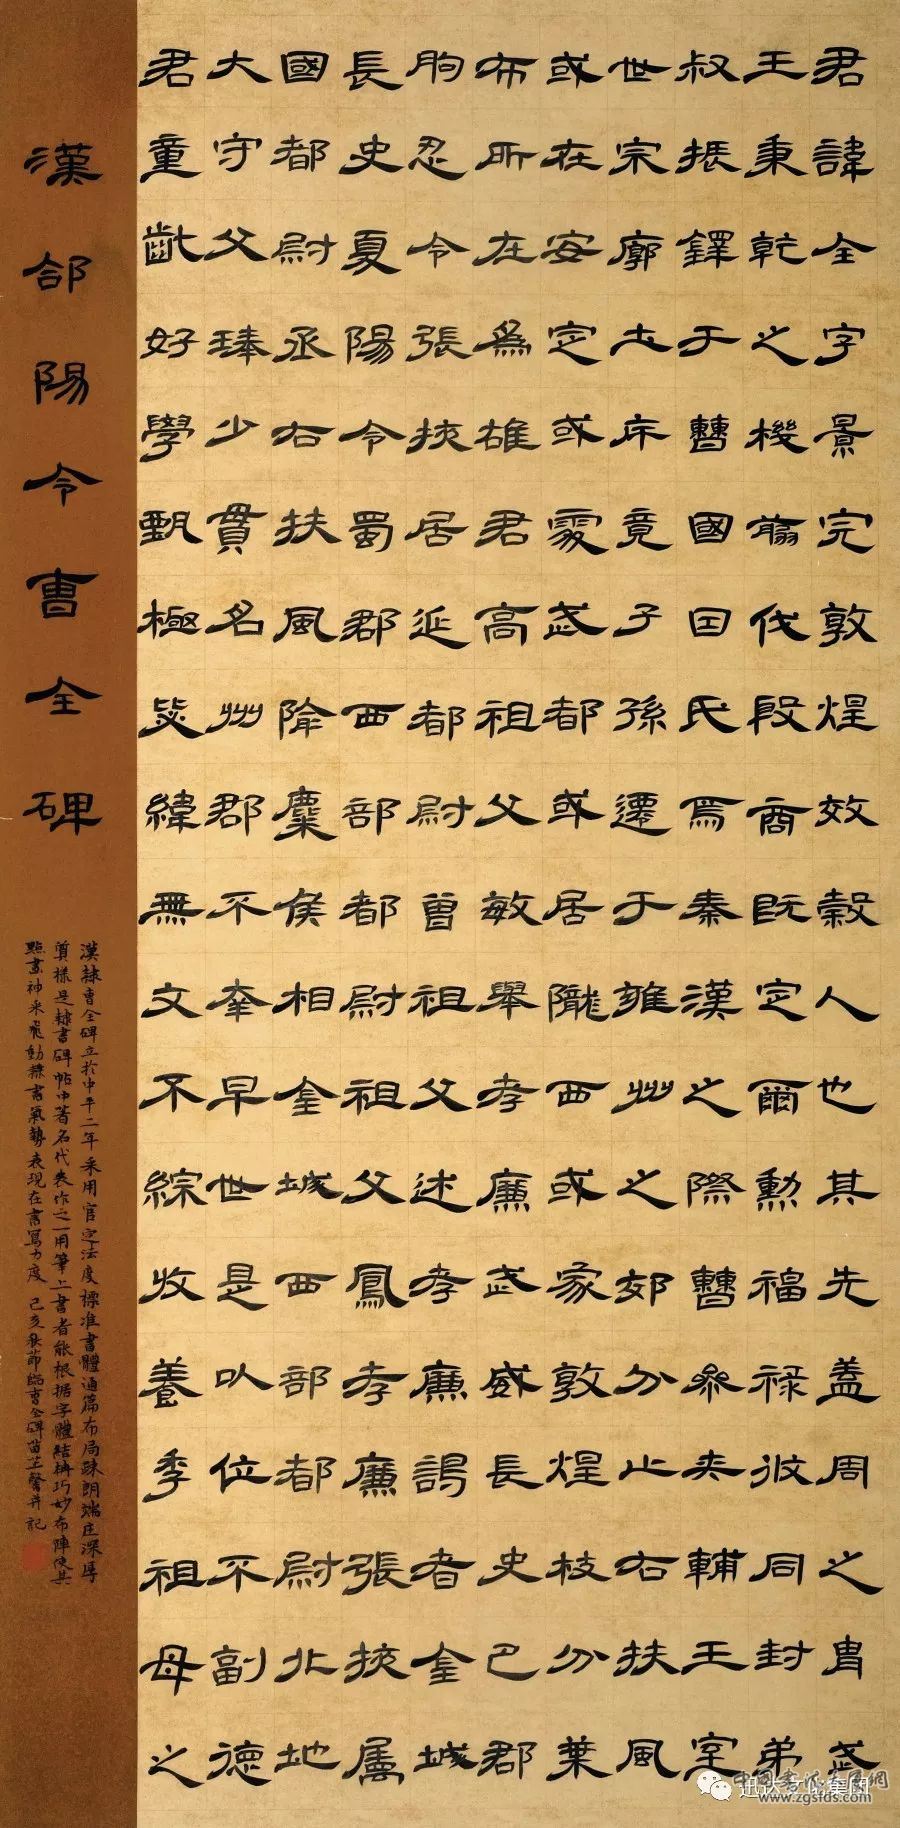 君諱全字景完敦煌效穀人也其先蓋周之胄武
王秉乾之機翦伐殷商既定爾勳福祿攸同封弟
叔振鐸于曹國因氏焉秦漢之際曹參夾輔王室
世宗廓土斥竟子孫遷于雍州之郊分止右扶風
或在安定或處武都或居隴西或家敦煌枝分葉
布所在為雄君高祖父敏舉孝廉武威長史巴郡
朐忍令張掖居延都尉曾祖父述孝廉謁者金城
長史夏陽令蜀郡西部都尉祖父鳳孝廉張掖屬
國都尉丞右扶風隃麋侯相金城西部都尉北地
大守父琫少貫名州郡不幸早世是以位不副德
君童齔好學甄極毖緯無文不綜收養季祖母之
漢郃陽令曹全碑
漢隸曹全碑立於中平二年采用官定法度標准書體通篇布局疎朗端庄深厚
質樸是隸書碑帖中著名代表作之一用筆上書者能根据字體結構巧妙布陣使其
點畫神采飛動隸書氣勢表現在書寫力度 己亥秋節臨曹全碑苗芷馨并記
www.zgsfds.com